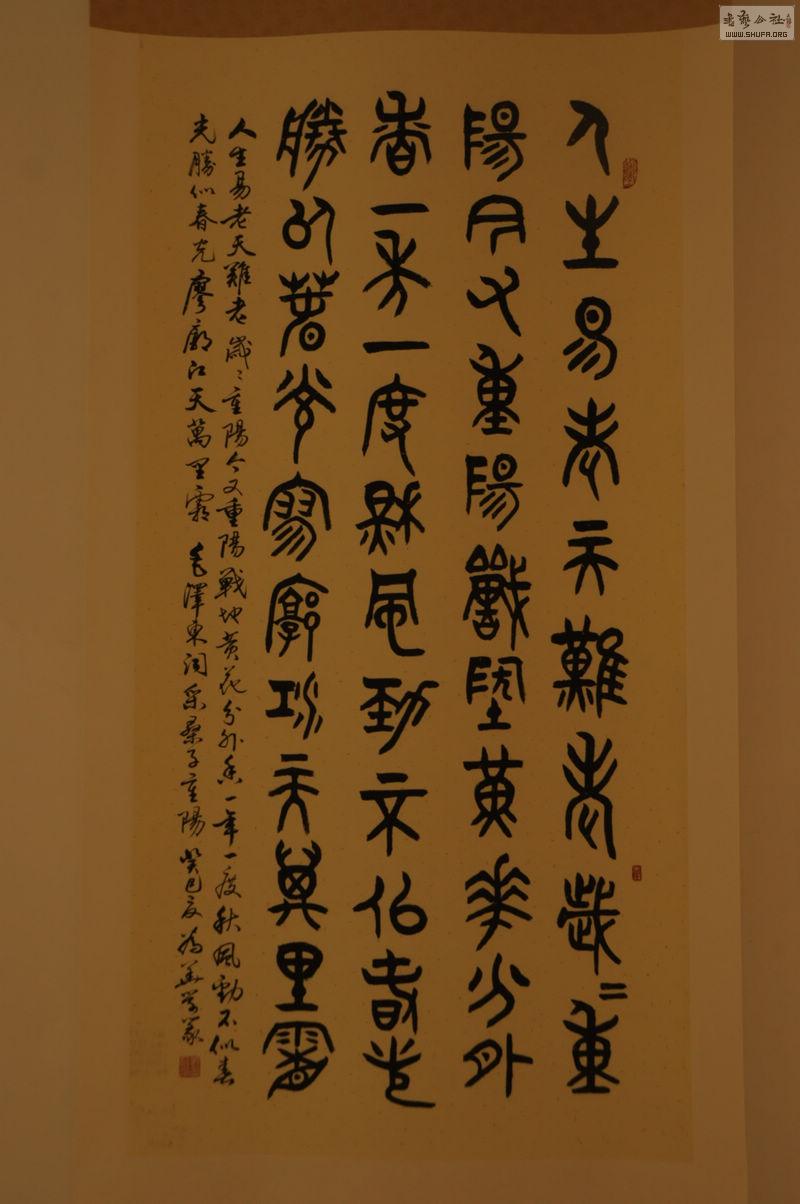 人生易老天難老歲〻重
陽今又重陽戰地黃花分外
香一年一度秋風勁不似春光
勝似春光寥廓江天萬里霜
人生易老天難老歲〻重陽今又重陽戰地黃花分外香一年一度秋風勁不似春
光勝似春光寥廓江天萬里霜 毛澤東詞采桑子重陽 癸巳夏
書藝公社
WWW.SHUFA.ORG